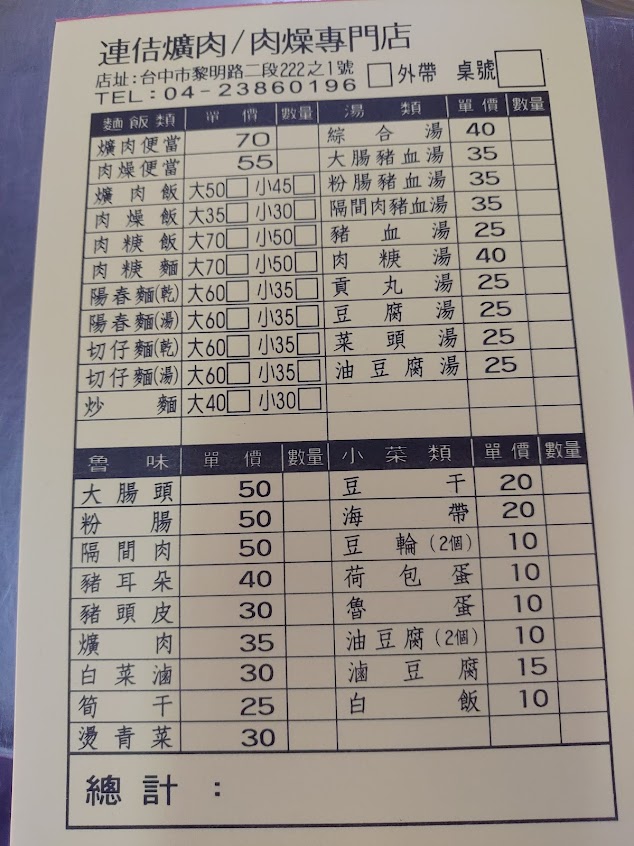 連佶爌肉/肉燥專門店
店址:台中市黎明路二段222之1號
TEL:04-23860196 □外帶 桌號
麵飯類 單價 數量 湯類 單價 數量
爌肉便當 70 綜合湯 40
肉燥便當 55 大腸豬血湯 35
爌肉飯 大50□ 小45□ 粉腸豬血湯 35
肉燥飯 大35□ 小30□ 隔間肉豬血湯 35
肉焿飯 大70□ 小50□ 豬血湯 25
肉焿麵 大70□ 小50□ 肉焿湯 40
陽春麵(乾) 大60□ 小35□ 貢丸湯 25
陽春麵(湯) 大60□ 小35□ 豆腐湯 25
切仔麵(乾) 大60□ 小35□ 菜頭湯 25
切仔麵(湯) 大60□ 小35□ 油豆腐湯 25
炒麵 大40□ 小30□
魯味 單價 數量 小菜類 單價 數量
大腸頭 50 豆干 20
粉腸 50 海帶 20
隔間肉 50 豆輪(2個) 10
豬耳朵 40 荷包蛋 10
豬頭皮 30 魯蛋 10
爌肉 35 油豆腐(2個) 10
白菜滷 30 滷豆腐 15
筍干 25 白飯 10
燙青菜 30
總計: